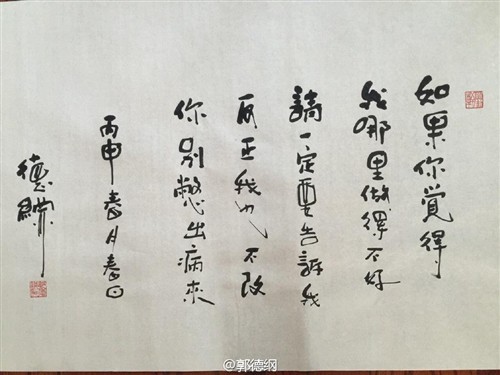 如果你覺得
我哪里做得不好
請一定要告訴我
反正我也不改
你別憋出病來
丙申春月春日
德綱
@郭德纲